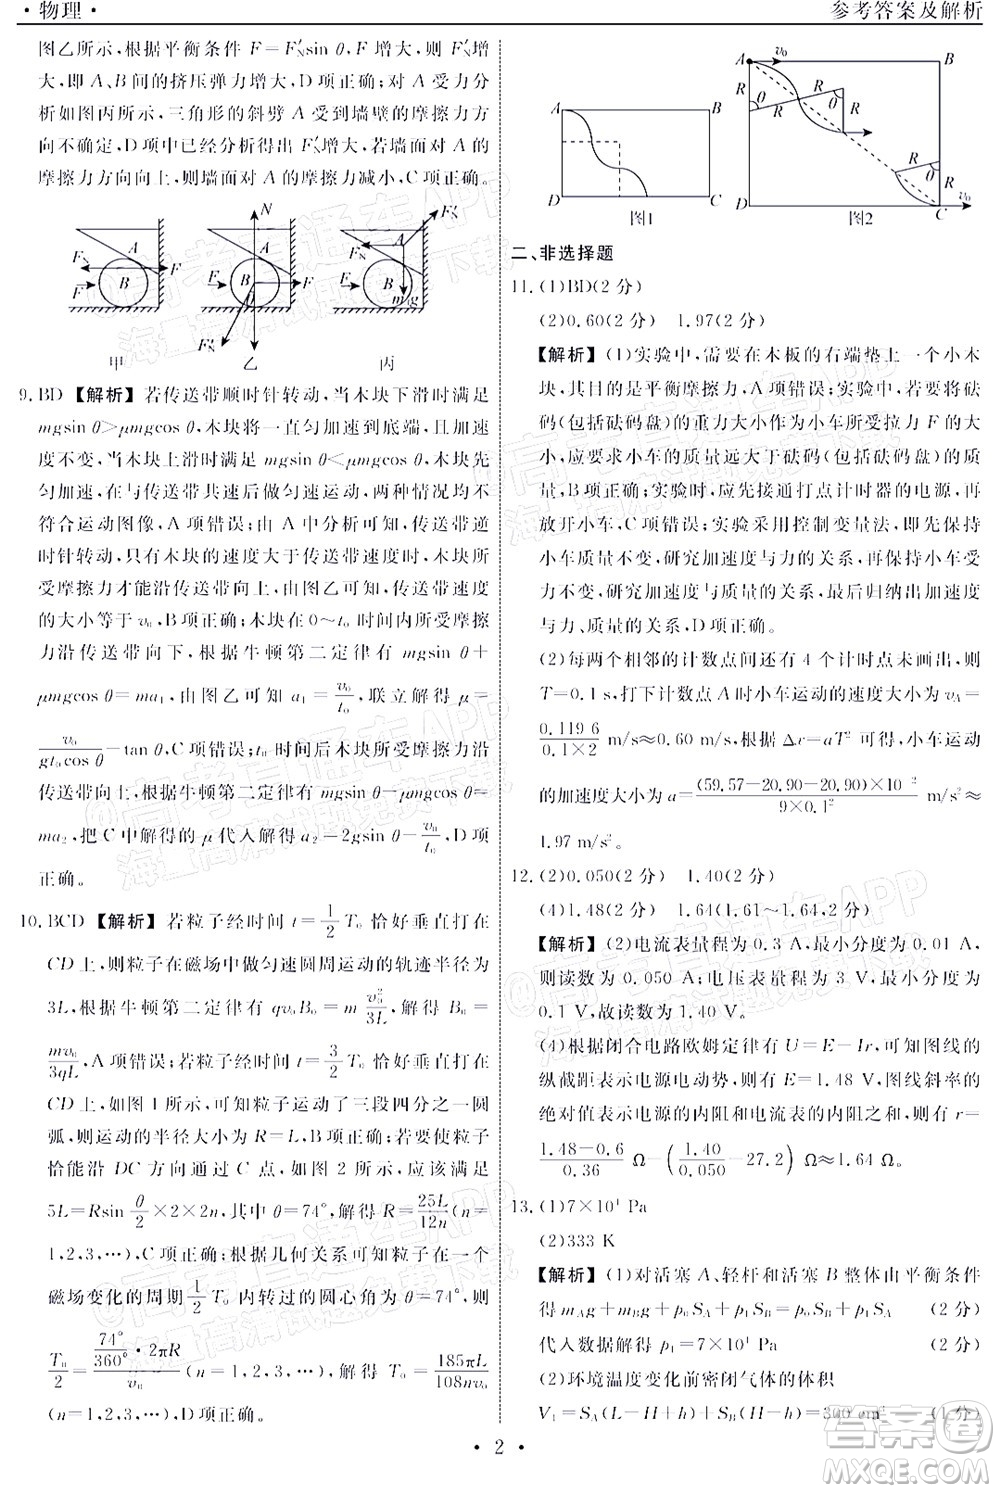 ·物理·
参考答案及解析
图乙所示,根据平衡条件 F=F′N sin θ,F 增大,则 F′N 增
大,即 A、B 间的挤压弹力增大,B 项正确;对 A 受力分
析如图丙所示,三角形的斜劈 A 受到墙壁的摩擦力方
向不确定,D 项中已经分析得出 F′N 增大,若墙面对 A 的
摩擦力方向向上,则墙面对 A 的摩擦力减小,C 项正确。
甲 乙 丙
9. BD 【解析】若传送带顺时针转动,当木块下滑时满足
mgsin θ>μmgcos θ,木块将一直匀加速到底端,且加
速度不变,当木块上滑时满足 mgsin θ<μmgcos θ,木块先
匀加速,在与传送带共速后做匀速运动,两种情况均不
符合运动图像,A 项错误;由 A 中分析可知,传送带逆
时针转动,只有木块的速度大于传送带速度时,木块所
受摩擦力才能沿传送带向上,由图乙可知,传送带速度
的大小等于 v₀,B 项正确;木块在 0～t₀ 时间内所受摩擦
力沿传送带向下,根据牛顿第二定律有 mgsin θ+
μmgcos θ=ma₁,由图乙可知 a₁=v₀/t₀,联立解得 μ=
v₀/(gt₀cos θ)−tan θ,C 项错误;t₀ 时间后木块所受摩擦力沿
传送带向上,根据牛顿第二定律有 mgsin θ−μmgcos θ=
ma₂,把 C 中解得的 μ 代入解得 a₂=2gsin θ−v₀/t₀,D 项
正确。
10. BCD 【解析】若粒子经时间 t=1/2 T₀ 恰好垂直打在
CD 上,则粒子在磁场中做匀速圆周运动的轨迹半径为
3L,根据牛顿第二定律有 qv₀B₀=m v₀²/3L,解得 B₀=
mv₀/3qL,A 项错误;若粒子经时间 t=3/2 T₀ 恰好垂直打在
CD 上,如图 1 所示,可知粒子运动了三段四分之一圆
弧,则运动的半径大小为 R=L,B 项正确;若要使粒子
恰能沿 DC 方向通过 C 点,如图 2 所示,应该满足
5L=Rsin θ/2×2×2n,θ=74°,解得 R=25L/12n(n=
1,2,3,…),C 项正确;根据几何关系可知粒子在一个
磁场变化的周期 1/2 T₀ 内转过的圆心角为 θ=74°,则
T₀/2=(74°/360°·2πR)/v₀(n=1,2,3,…),解得 T₀=185πL/108nv₀
(n=1,2,3,…),D 项正确。
A B D C 图1
A v₀ B R θ R R θ R R θ R D C v₀ 图2
二、非选择题
11. (1)BD(2 分)
(2)0.60(2 分) 1.97(2 分)
【解析】(1)实验中,需要在木板的右端垫上一个小木
块,其目的是平衡摩擦力,A 项错误;实验中若要将砝
码(包括砝码盘)的重力大小作为小车所受拉力 F 的
大小,要求小车的质量远大于砝码(包括砝码盘)的质
量,B 项正确;实验时,应先接通打点计时器的电源,再
放开小车,C 项错误;实验采用控制变量法,即先保持
小车质量不变,研究加速度与力的关系,再保持小车受
力不变,研究加速度与质量的关系,最后归纳加速度
与力、质量的关系,D 项正确。
(2)每两个相邻的计数点间还有 4 个计时点未画出,则
T=0.1 s,打下计数点 A 时小车运动的速度大小为 vA=
0.119 6/(0.1×2) m/s≈0.60 m/s,根据 Δx=aT² 可得,小车运动
的加速度大小为 a=(59.57−20.90−20.90)×10⁻²/(9×0.1²) m/s²≈
1.97 m/s²。
12. (2)0.050(2 分) 1.40(2 分)
(4)1.48(2 分) 1.64(1.61～1.64,2 分)
【解析】(2)电流表量程为 0.3 A,最小分度为 0.01 A,
则读数为 0.050 A;电压表量程为 3 V,最小分度为
0.1 V,故读数为 1.40 V。
(4)根据闭合电路欧姆定律有 U=E−Ir,可知图线的
纵截距表示电源电动势,则有 E=1.48 V,图线斜率的
绝对值表示电源的内阻和电流表的内阻之和,有 r=
(1.48−0.6)/0.36 Ω−(1.40/0.050−27.2)Ω≈1.64 Ω。
13. (1)7×10⁴ Pa
(2)333 K
【解析】(1)对活塞 A、轻杆和活塞 B 整体由平衡条件
得 mAg+mBg+p₀SA+p₁SB=p₁SA+p₀SB (2 分)
代入数据解得 p₁=7×10⁴ Pa (2 分)
(2)环境温度变化前密闭气体的体积
V₁=SA(L−H+h)+SB(H−h)=300 cm³ (1 分)
· 2 ·
答案圈
MXQE.COM